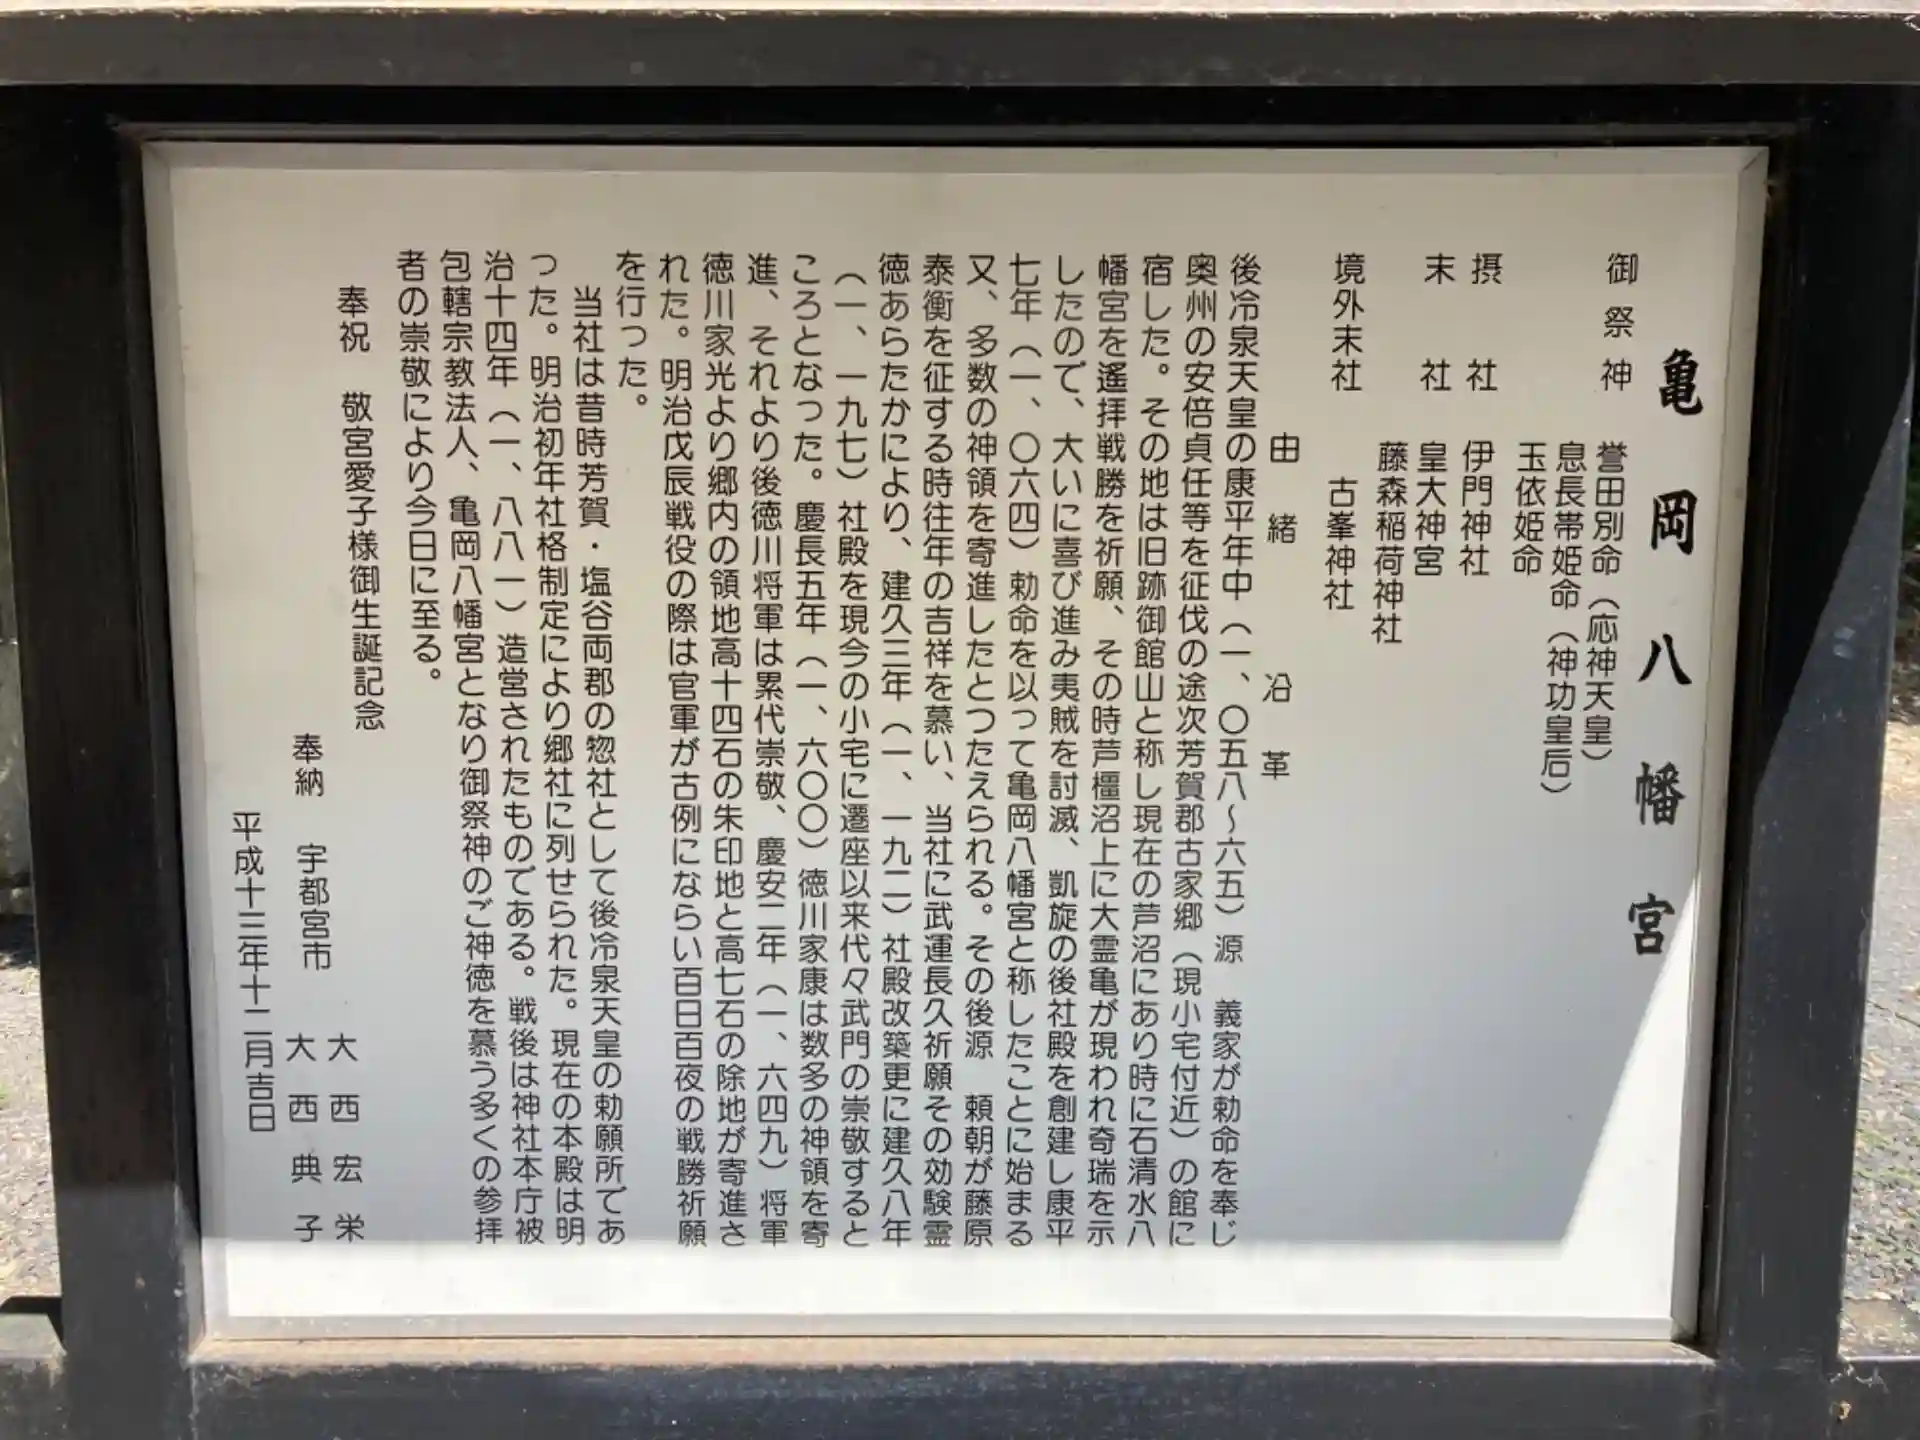 亀岡八幡宮
御祭神 誉田別命(応神天皇)
息長帯姫命(神功皇后)
玉依姫命
摂社 伊門神社
末社 皇大神宮
藤森稲荷神社
境外末社 古峯神社
由緒沿革
後冷泉天皇の康平年中(一、〇五八〜六五)源 義家が勅命を奉じ
奥州の安倍貞任等を征伐の途次芳賀郡古家郷(現小宅付近)の館に
宿した。その地は旧跡御館山と称し現在の芦沼にあり時に石清水八
幡宮を遙拝戦勝を祈願、その時芦橿沼上に大霊亀が現われ奇瑞を示
したので、大いに喜び進み夷賊を討滅、凱旋の後社殿を創建し康平
七年(一、〇六四)勅命を以って亀岡八幡宮と称したことに始まる
又、多数の神領を寄進したとつたえられる。その後源 頼朝が藤原
泰衡を征する時往年の吉祥を慕い、当社に武運長久祈願その効験霊
徳あらたかにより、建久三年(一、一九二)社殿改築更に建久八年
(一、一九七)社殿を現今の小宅に遷座以来代々武門の崇敬すると
ころとなった。慶長五年(一、六〇〇)徳川家康は数多の神領を寄
進、それより後徳川将軍は累代崇敬、慶安二年(一、六四九)将軍
徳川家光より郷内の領地高十四石の朱印地と高七石の除地が寄進さ
れた。明治戊辰戦役の際は官軍が古例にならい百日百夜の戦勝祈願
を行った。
当社は昔時芳賀・塩谷両郡の惣社として後冷泉天皇の勅願所であ
った。明治初年社格制定により郷社に列せられた。現在の本殿は明
治十四年(一、八八一)造営されたものである。戦後は神社本庁被
包轄宗教法人、亀岡八幡宮となり御祭神のご神徳を慕う多くの参拝
者の崇敬により今日に至る。
奉祝 敬宮愛子様御生誕記念
奉納 宇都宮市 大西宏栄
大西典子
平成十三年十二月吉日